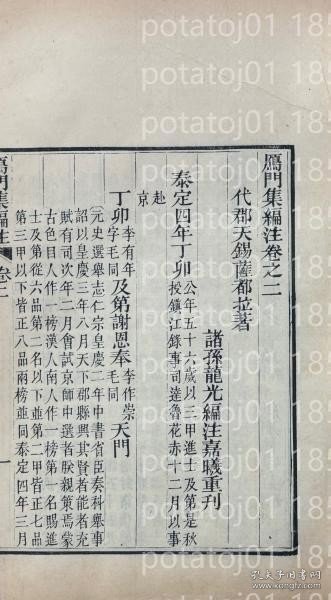 鴈門集編注卷之二
代郡天錫薩都拉著
諸孫龍光編注嘉曦重刊
泰定四年丁卯
公年五十六歲以三甲進士及第是秋
授鎮江錄事司達魯花赤十二月以事
赴
京
丁卯李有年字毛同及第謝恩奉李作崇毛同天門
元史選舉志仁宗皇慶二年中書省臣奏科舉事
詔以皇慶三年八月天下郡縣興其賢者能者充
賦有司次年二月會試京師中選者朕親策焉蒙
古色目人作一榜漢人南人作一榜第一名賜進
士及第從六品第二名以下並第二甲皆正七品
第三甲以下皆正八品兩榜並同泰定四年三月
鴈門集編注 卷二 一
potatoj01
potatoj01
potatoj01
potatoj01
孔夫子旧书网